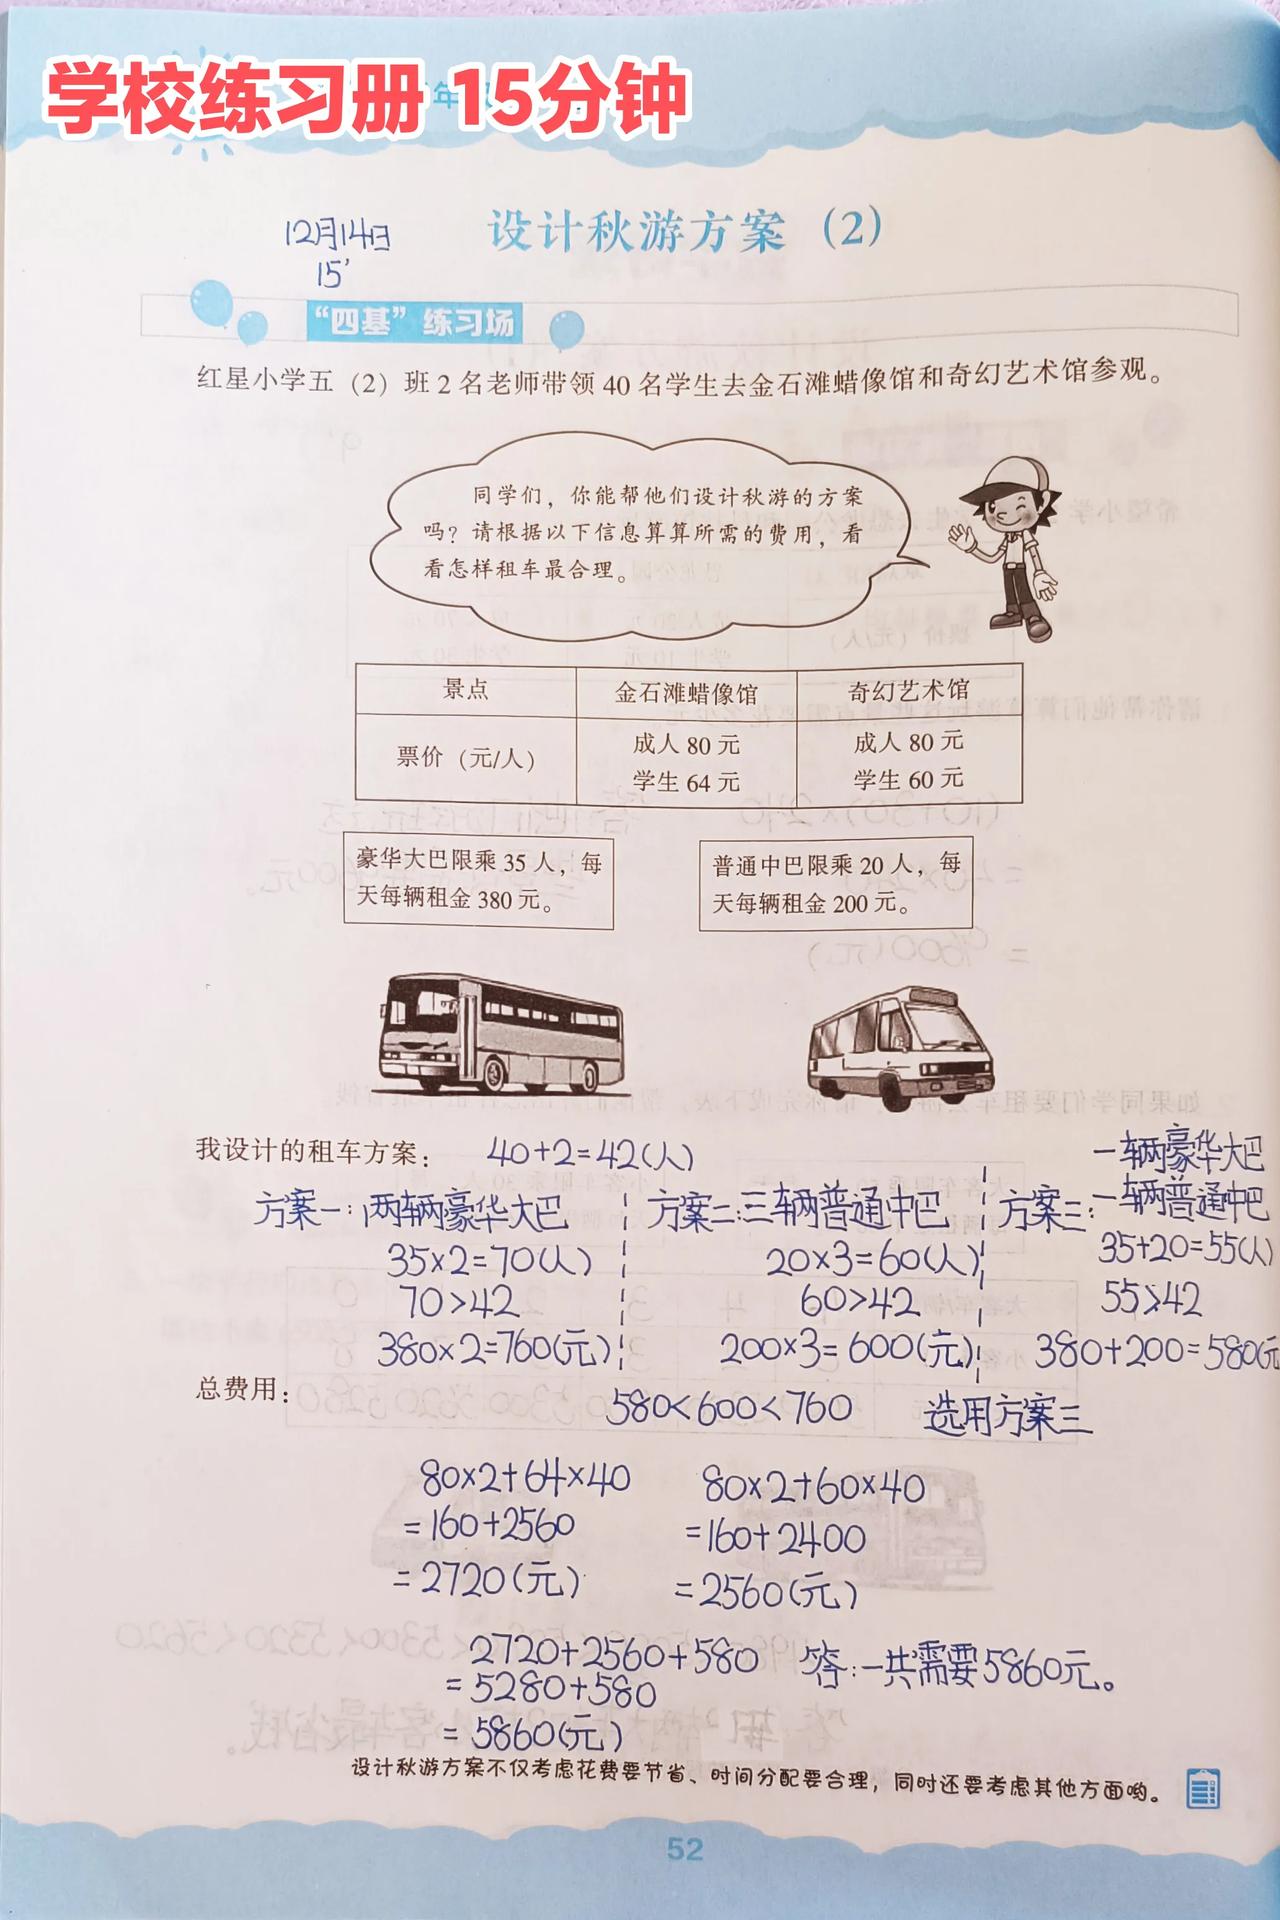 学校练习册 15分钟
年
12月14日
15'
设计秋游方案（2）
“四基”练习场
红星小学五（2）班2名老师带领40名学生去金石滩蜡像馆和奇幻艺术馆参观。
同学们，你能帮他们设计秋游的方案
吗？请根据以下信息算算所需的费用，看
看怎样租车最合理。
景点 金石滩蜡像馆 奇幻艺术馆
票价（元/人） 成人80元 成人80元
学生64元 学生60元
豪华大巴限乘35人，每
天每辆租金380元。
普通中巴限乘20人，每
天每辆租金200元。
我设计的租车方案： 40+2=42(人)
方案一：两辆豪华大巴
35×2=70(人)
70>42
380×2=760(元)
方案二:三辆普通中巴
20×3=60(人)
60>42
200×3=600(元)
方案三:
一辆豪华大巴
一辆普通中巴
35+20=55(人)
55>42
380+200=580(元
总费用： 580<600<760 选用方案三
80×2+64×40
=160+2560
=2720(元)
80×2+60×40
=160+2400
=2560(元)
2720+2560+580
=5280+580
=5860(元)
答:一共需要5860元。
设计秋游方案不仅考虑花费要节省、时间分配要合理，同时还要考虑其他方面哟。
52